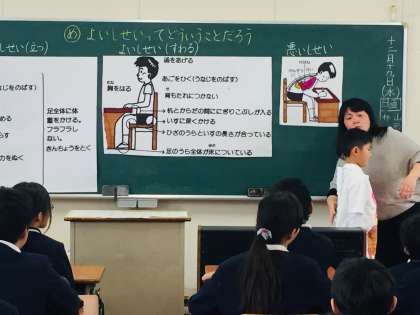 め よいしせいってどういうことだろう
しせい(立つ)
よいしせい(すわる)
悪いしせい
頭をあげる
あごをひく(うなじをのばす)
胸をはる
背もたれにつかない
机とからだの間ににぎりこぶしが入る
いすに深くかける
ひざのうらといすの長さが合っている
足のうら全体が床についている
なじをのばす)
める
らす
力をぬく
足全体に体
重をかける。
フラフラし
ない。
きんちょうをとく
十二月十九日(水)
日直